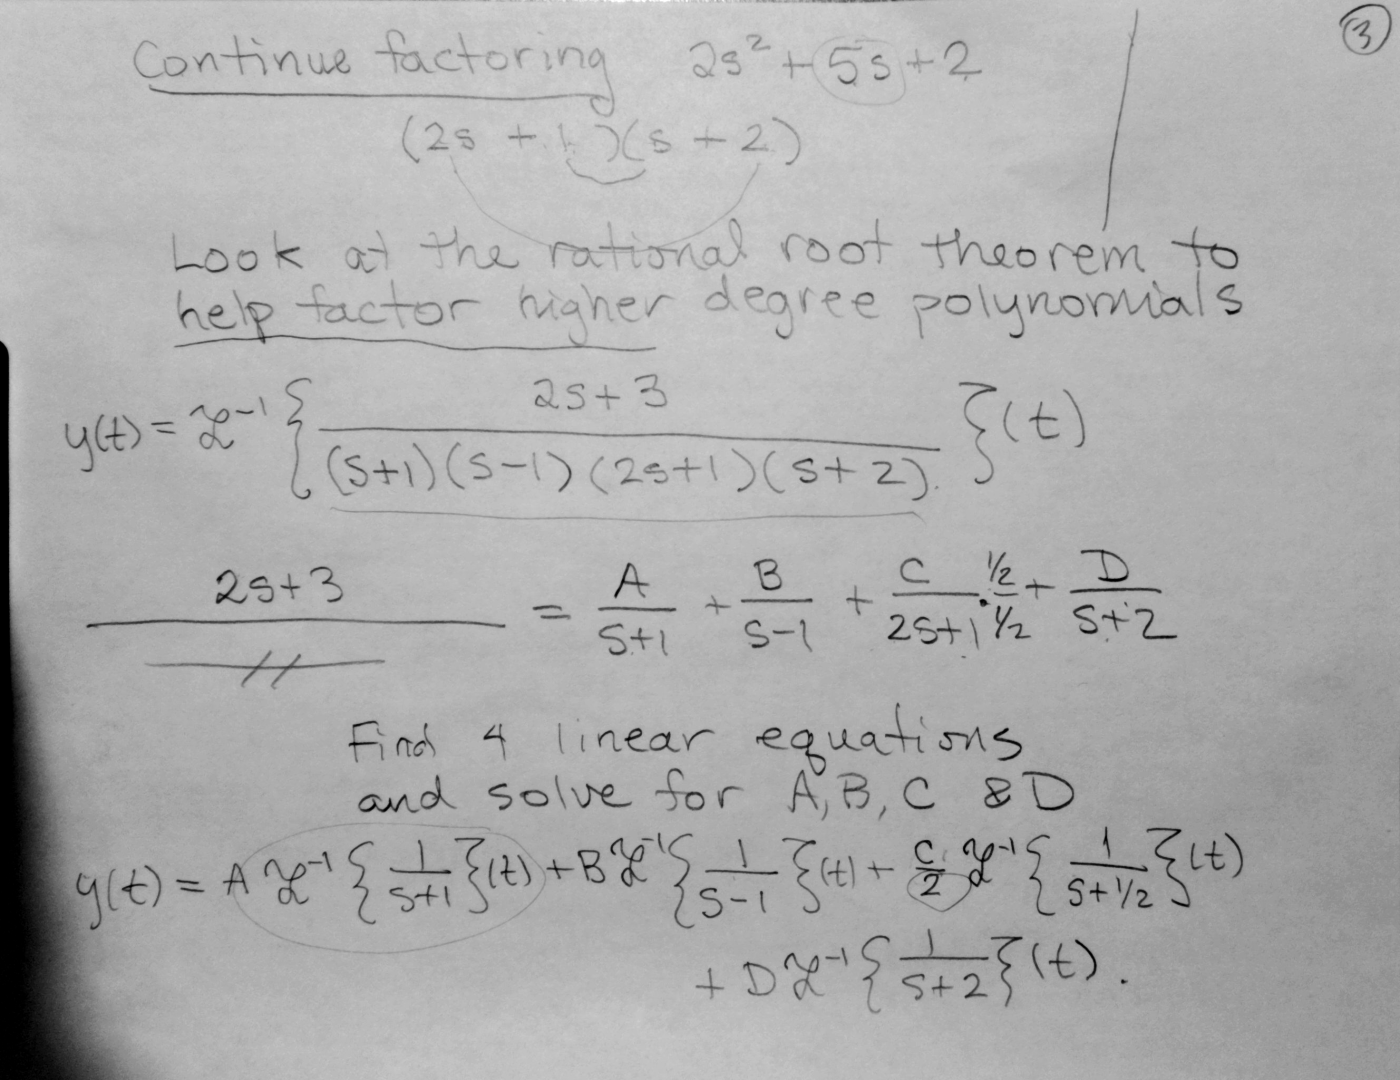 ③
Continue factoring 2s² + 5s + 2
(2s + 1)(s + 2)
Look at the rational root theorem to
help factor higher degree polynomials
y(t) = ℒ⁻¹ { (2s+3) / ((s+1)(s-1)(2s+1)(s+2)) } (t)
(2s+3) / // = A/(s+1) + B/(s-1) + C/(2s+1) · (1/2)/(1/2) + D/(s+2)
Find 4 linear equations
and solve for A, B, C & D
y(t) = A ℒ⁻¹ { 1/(s+1) } (t) + B ℒ⁻¹ { 1/(s-1) } (t) + C/2 ℒ⁻¹ { 1/(s+1/2) } (t)
+ D ℒ⁻¹ { 1/(s+2) } (t).